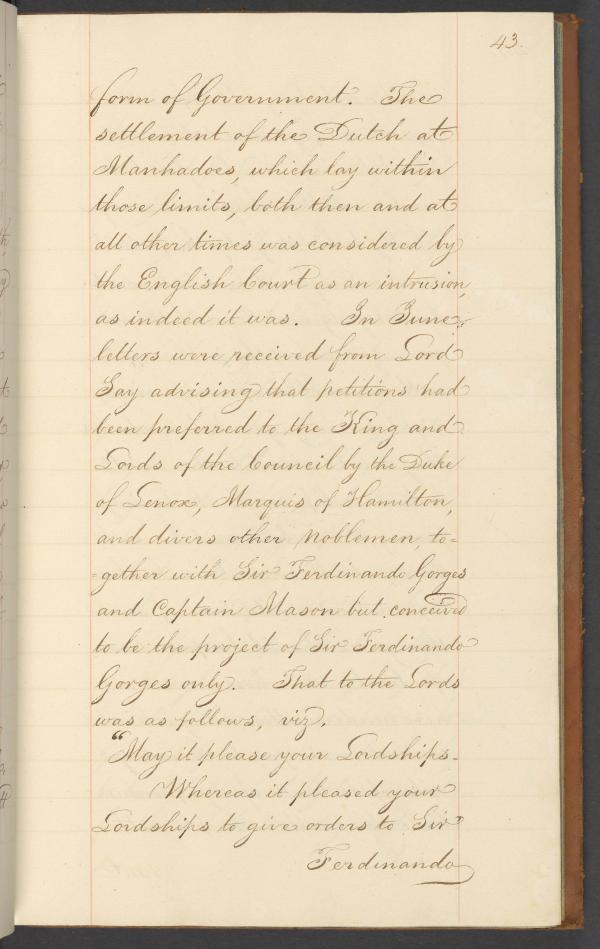 43.
form of Government. The
settlement of the Dutch at
Manhadoes, which lay within
those limits, both then and at
all other times was considered by
the English Court as an intrusion,
as indeed it was. In June,
letters were received from Lord
Say advising that petitions had
been preferred to the King and
Lords of the Council by the Duke
of Lenox, Marquis of Hamilton,
and divers other noblemen, to=
=gether with Sir Ferdinando Gorges
and Captain Mason but conceived
to be the project of Sir Ferdinando
Gorges only. That to the Lords
was as follows, viz.
"May it please your Lordships.
Whereas it pleased your
Lordships to give orders to Sir
Ferdinando